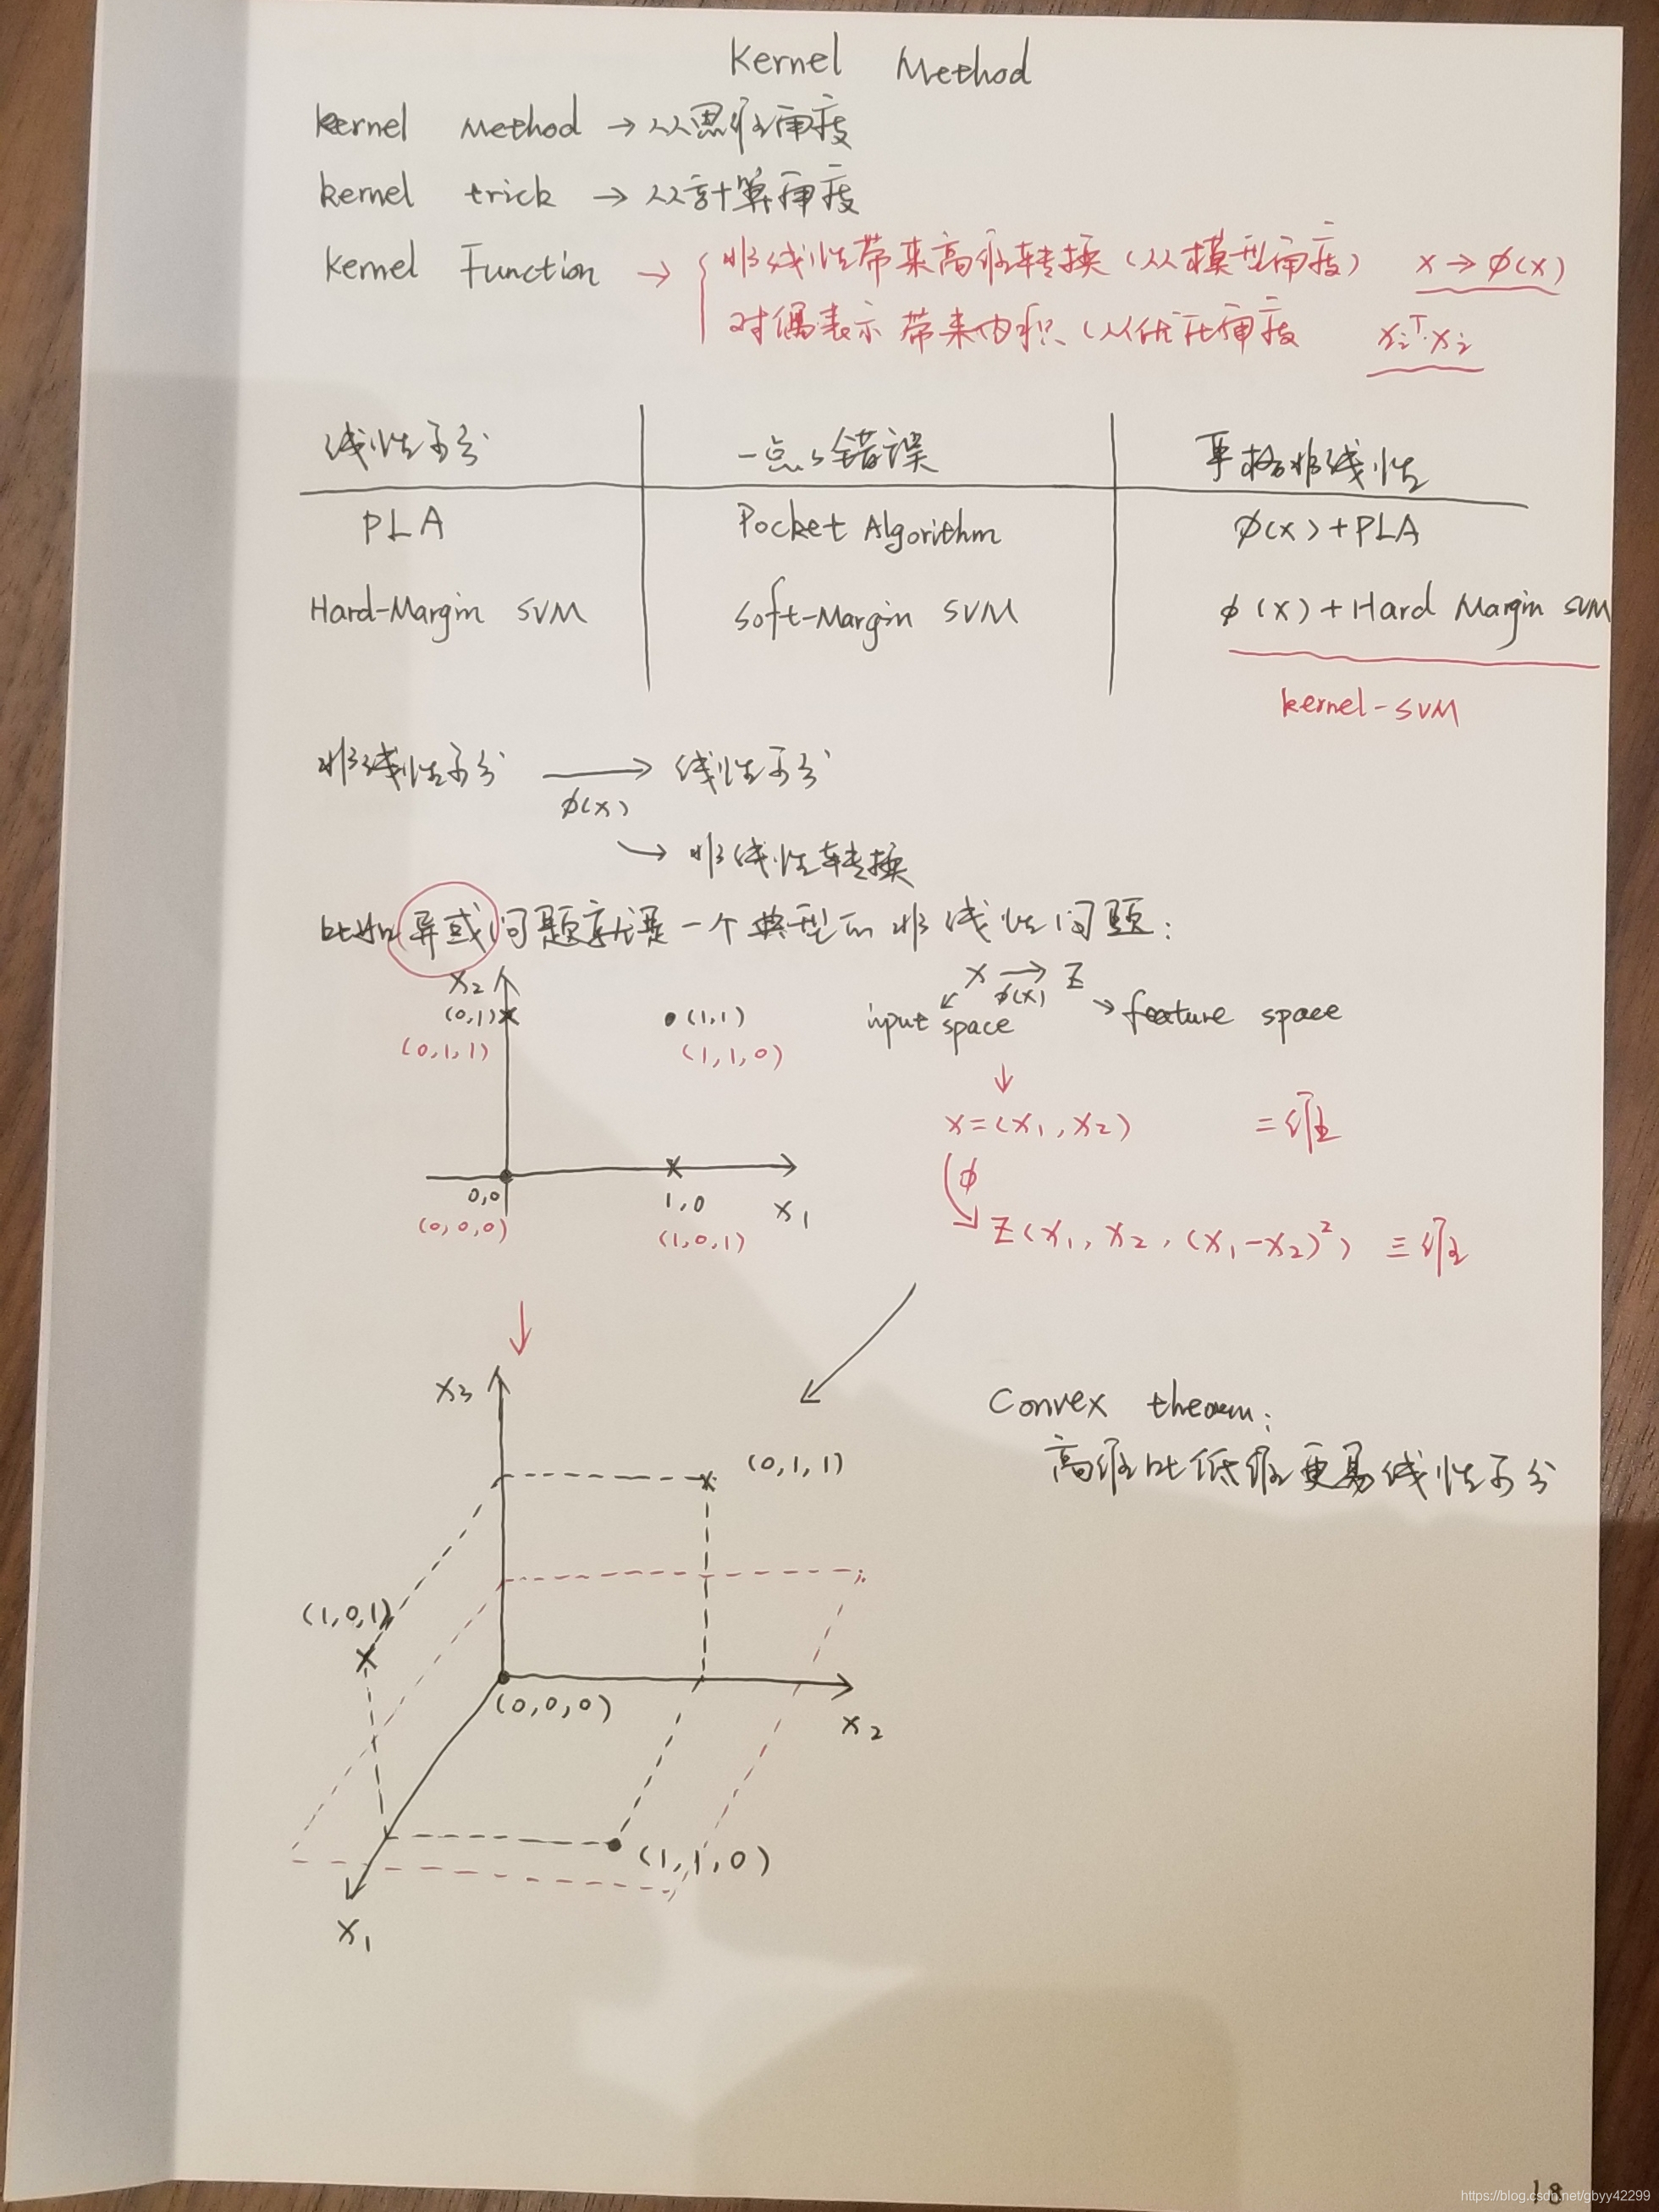 Kernel Method
kernel Method → 从思维角度
kernel trick → 从計算角度
Kernel Function → { 非线性带来高维转换（从模型角度） x → ϕ(x)
对偶表示 带来内积（从优化角度 xiᵀ·xj
线性可分 一点点错误 严格非线性
PLA Pocket Algorithm ϕ(x)+PLA
Hard-Margin SVM Soft-Margin SVM ϕ(x)+Hard Margin SVM
kernel-SVM
非线性可分 → 线性可分
ϕ(x)
↳ 非线性转换
比如异或问题就是一个典型的非线性问题：
x → z
ϕ(x)
input space
feature space
x2
(0,1)
(0,1,1)
(1,1)
(1,1,0)
0,0
(0,0,0)
1,0
(1,0,1)
x1
x=(x1,x2) 二维
ϕ
z(x1,x2,(x1-x2)²) 三维
x3
(0,1,1)
(1,0,1)
(0,0,0)
x2
(1,1,0)
x1
Convex
高维比低维更易线性可分
18
https://blog.csdn.net/gbyy42299